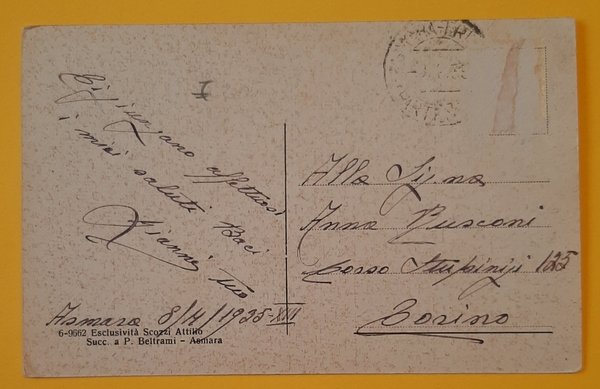 Ti giungano affettuosi
i miei saluti Baci
Gianni tuo
Asmara 8/4/1935-XIII
6-9662 Esclusività Scozzi Attilio
Succ. a P. Beltrami - Asmara
Alla Sig.na
Anna Rusconi
Corso Stupinigi 125
Torino